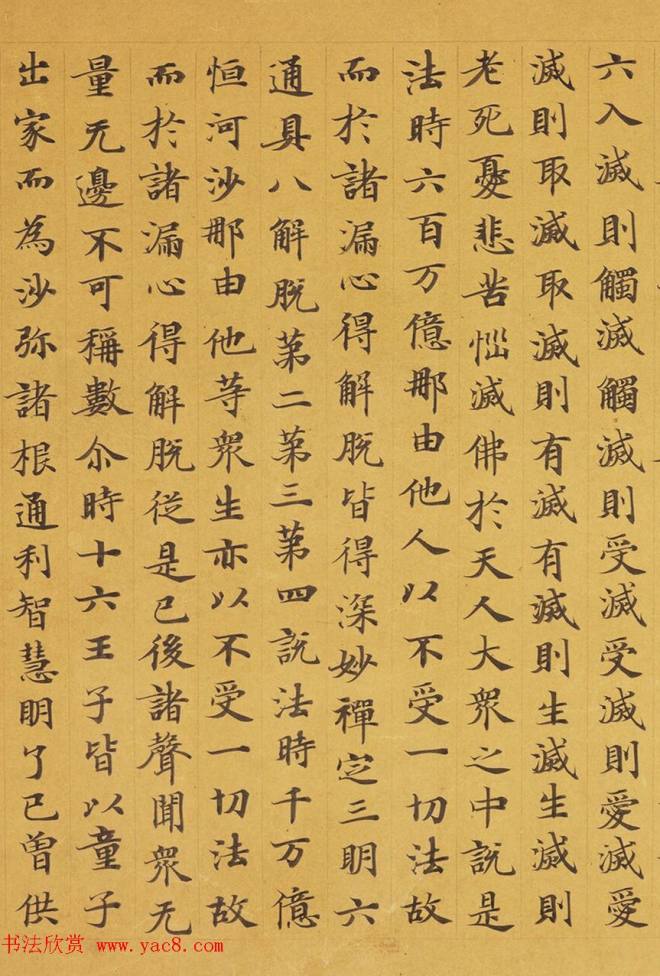 六入滅則觸滅觸滅則受滅受滅則愛滅愛
滅則取滅取滅則有滅有滅則生滅生滅則
老死憂悲苦惱滅佛於天人大眾之中說是
法時六百万億那由他人以不受一切法故
而於諸漏心得解脫皆得深妙禪定三明六
通具八解脫第二第三第四說法時千万億
恒河沙那由他等眾生亦以不受一切法故
而於諸漏心得解脫從是已後諸聲聞眾无
量无邊不可稱數尒時十六王子皆以童子
出家而為沙弥諸根通利智慧明了已曾供
书法欣赏 www.yac8.com